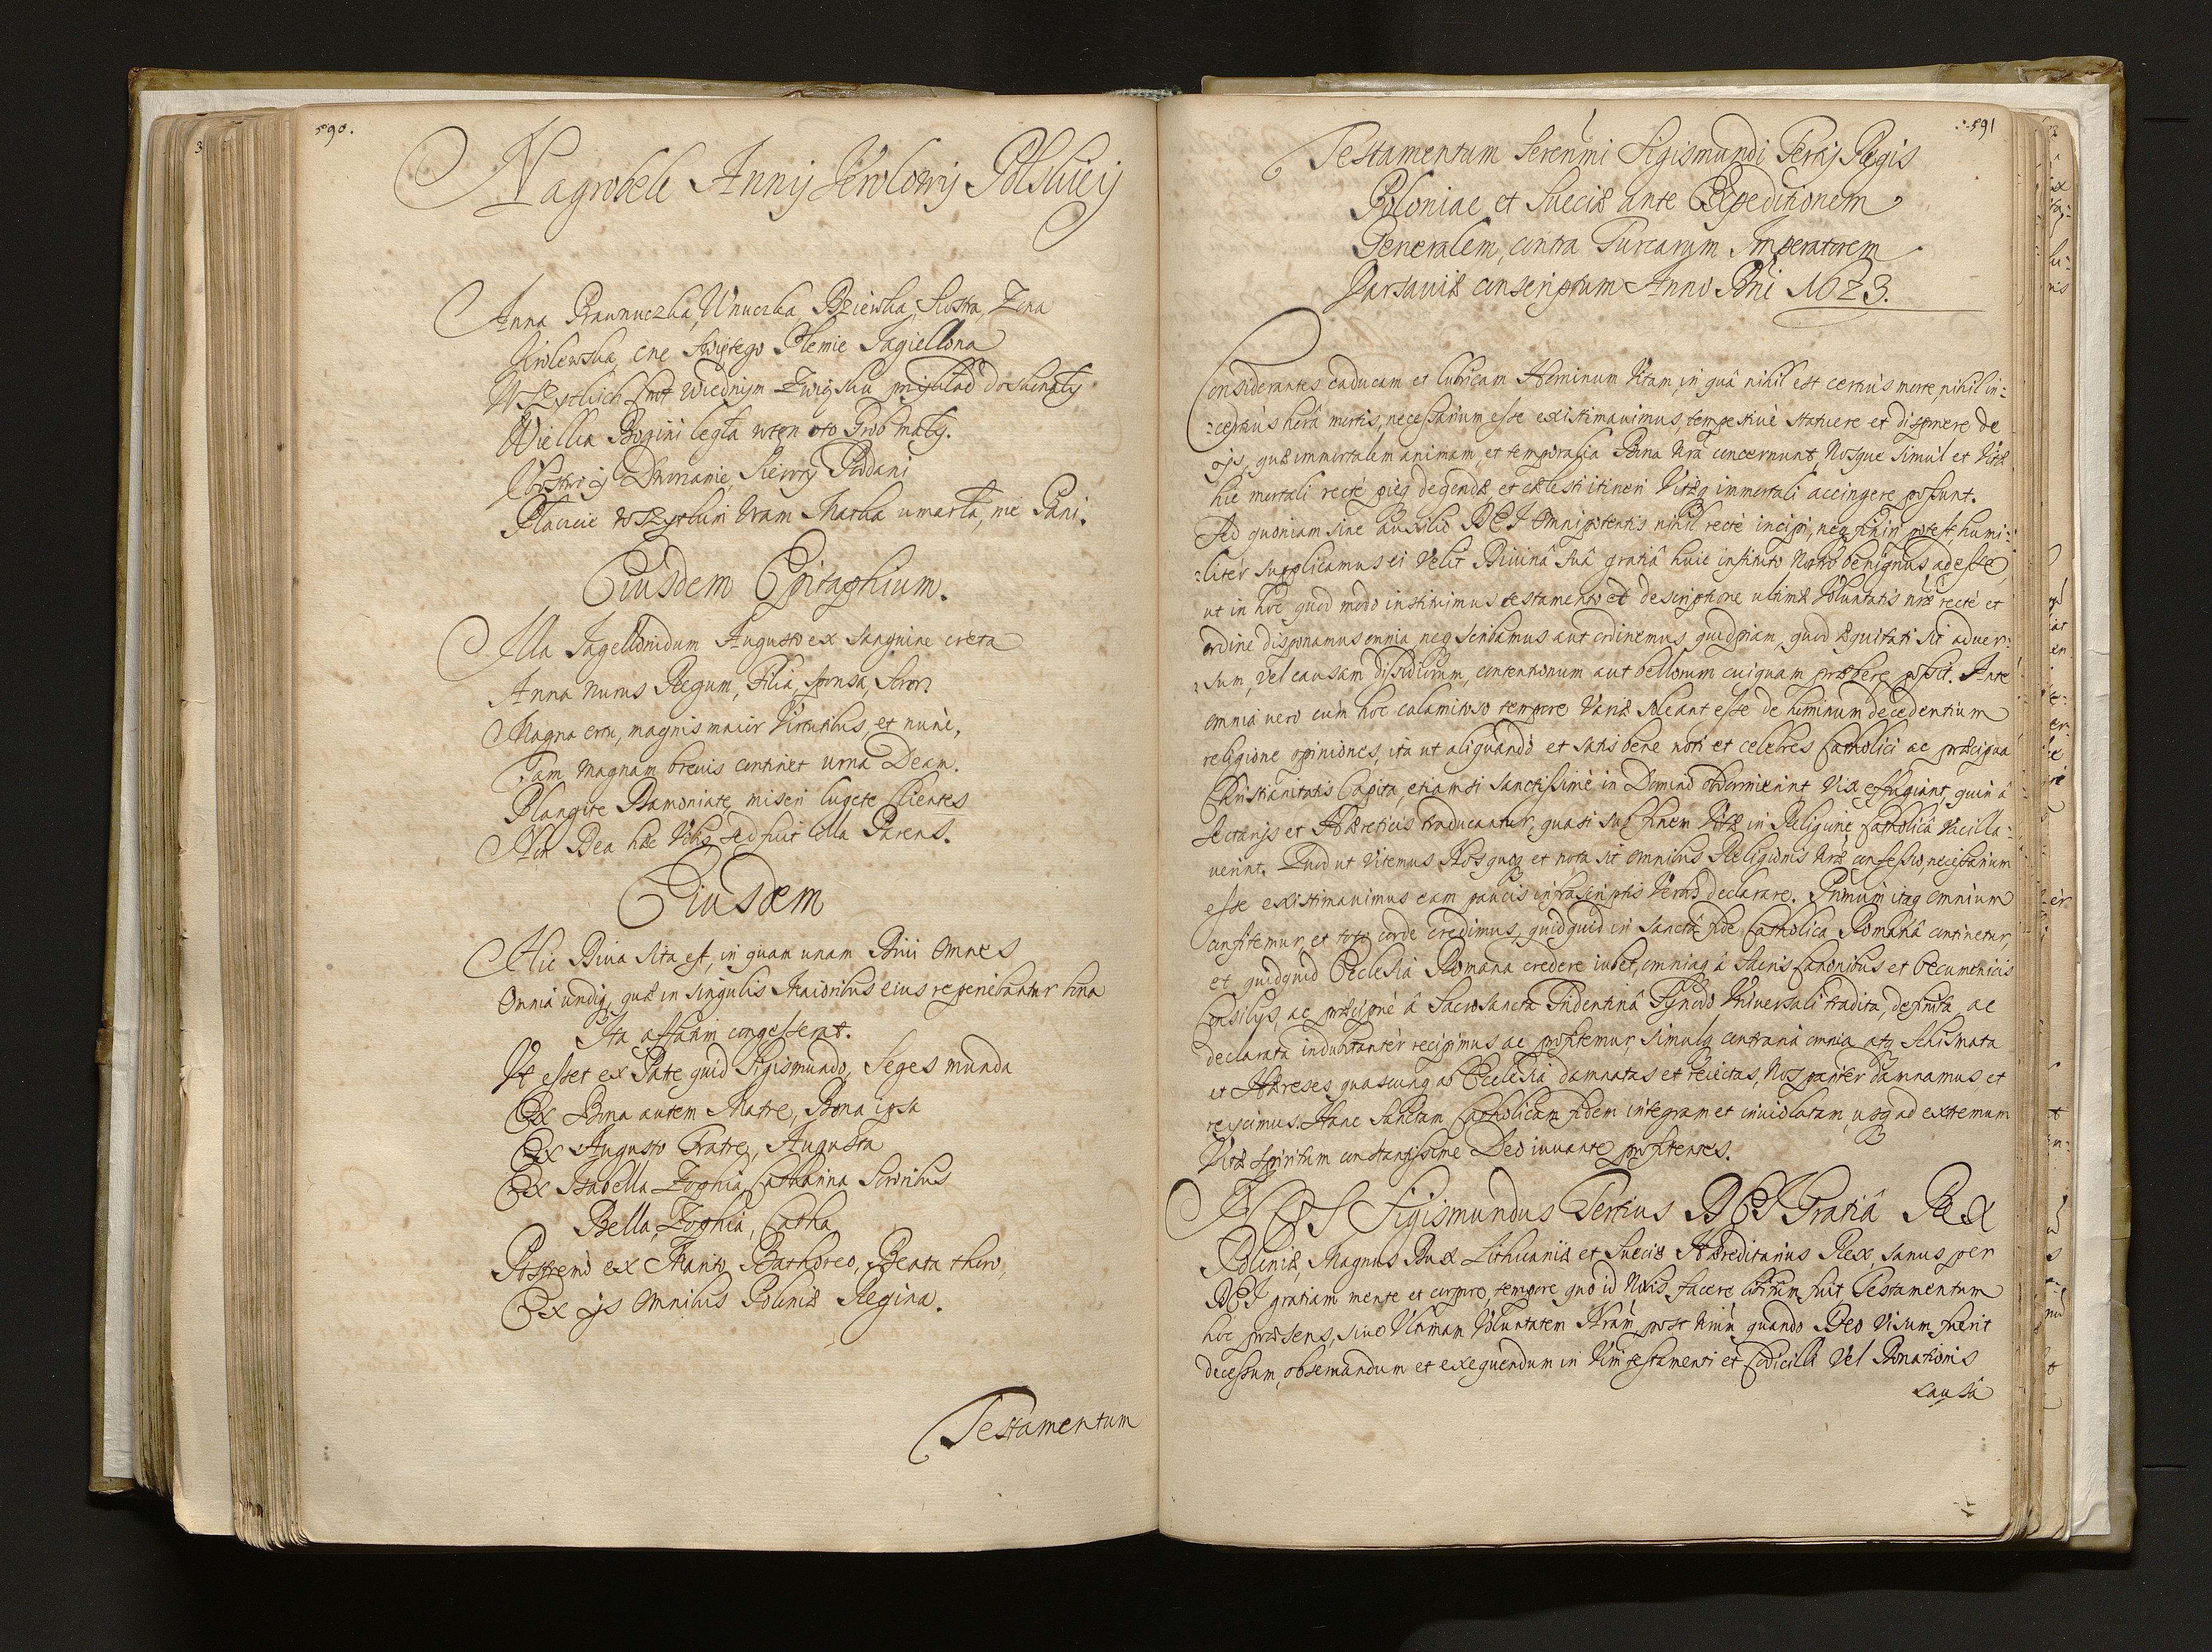 590.
Nagrobek Anny Krolowy Polskiey
Anna Prawnuczka, Wnuczka, Dziewka, Siostra, Zona
Krolewska, cne swiętego Plemie Jagiellona
Wszytkich cnot wiednym Zwiąsku przykład doskonały
Wielka Bogini legła wten oto Grob mały.
Ubostwo y Dworzanie, Sieroty Poddani
Płaczcie wszytkim wam Matka umarła, nie Pani.
Eiusdem Epitaphium.
Illa Jagellonidum Augusto ex sanguine creta
Anna nurus Regum, Filia, sponsa, Soror.
Magna ortu, magnis maior Virtutibus, et nunc,
Tam magnam breuis continet urna Deam.
Plangite Damoniate miseri lugete Clientes
Non Dea hæc Vobis sed fuit illa Parens.
Eiusdem
Hic Diua sita est, in quam unam Diui omnes
Omnia undiq, quæ in singulis Maioribus eius reperiebantur bona
Ita affatim congesserat.
Vt esset ex Patre quid Sigismundo, Seges munda
Ex Bona autem Matre, Bona ipsa
Ex Augusto Fratre, Augusta
Ex Isabella Zophia Catharina Sororibus
Bella, Zophia, Casta
Postremo ex Marito Bathoreo, Beata thoro,
Ex ijs omnibus Poloniæ Regina.
Testamentum
591
Testamentum Serenmi Sigismundi Tertij Regis
Poloniae et Sueciæ ante Expeditionem
Generalem, contra Turcarum Imperatorem
Varsauiæ conscriptum Anno Dni 1623.
Considerantes caducam et lubricam Hominum Vitam, in quâ nihil est certius morte, nihil in-
certius horâ mortis, necessarium esse existimauimus, tempestiuè statuere et disponere de
ijs, quæ immortalem animam, et temporalia Bona nra concernunt, Nosque simul et Vitæ
hic mortali rectè pieq degendæ, et cælesti itineri Vitæq immortali accingere possunt.
Sed quoniam sine auxilio DEI Omnipotentis nihil rectè incipi, neq finiri potest, humi-
liter supplicamus ei Velit Diuinâ suâ gratiâ huic instituto nostro benignus adesse,
ut in hoc quod modo instituimus testamento et descriptione ultimæ Voluntatis nræ rectè et
ordine disponamus omnia, neq scribamus aut ordinemus quidpiam, quod æquitati sit aduer-
sum, Vel causam dissidiorum, contentionum aut bellorum cuiquam præbere possit. Ante
omnia vero cum hoc calamitoso tempore Variæ soleant esse de hominum decedentium
religione opiniones, ita ut aliquando et satis bene noti et celebres Catholici ac præcipua
Christianitatis Capita, etiamsi Sanctissimè in Domino obdormierint Vix effugiant, quin â
Sectarijs et Hæreticis traducantur, quasi sub finem Vitæ in Religione Catholicâ Vacilla-
uerint. Quod ut Vitemus Nos quoq et nota sit omnibus Religionis nræ confessio, necessarium
esse existimauimus eam paucis infrascriptis Verbis declarare. Primum itaq omnium
confitemur, et toto corde credimus, quidquid in Sanctâ fide Catholica Romanâ continetur,
et quidquid Ecclesia Romana credere iubet, omniaq â Sacris Canonibus et Oecumenicis
Consilijs, ac præcipuè â Sacrosancta Tridentinâ Synodo Vniuersali tradita, definita ac
declarata indubitantèr recipimus ac profitemur, simulq contraria omnia atq Schismata
et Hæreses quascunq ab Ecclesiâ damnatas et reiectas, Nos paritèr damnamus et
reijcimus. Hanc Sanctam Catholicam fidem integram et inuiolatam, usq ad extremum
Vitæ spiritum constantissime Deo iuuante profitentes.
NOS Sigismundus Tertius DEI Gratiâ Rex
Poloniæ, Magnus Dux Lithuaniæ et Sueciæ Hæreditarius Rex, sanus per
DEI gratiam mente et corpore, tempore quo id Nobis facere libitum fuit, Testamentum
hoc præsens, siue Vltimam Voluntatem Nram post nrum quando Deo Visum fuerit
decessum, obseruandum et exequendum in Vim testamenti et Codicilli Vel Donationis
causâ